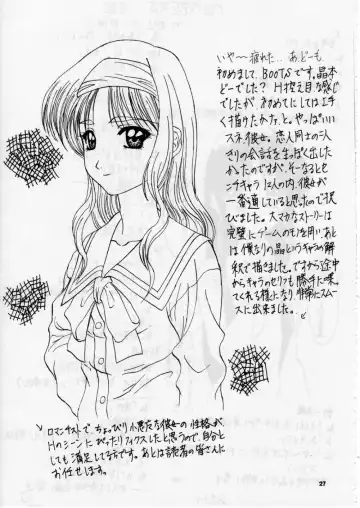 いや〜疲れた…あ、どーも
初めまして、BOOTSです。晶本
どーでした？H控え目な感じ
でしたが、初めてにしては上手
く描けたかナァ、と。やっぱいい
スネ彼女。恋人同士の二人
きりの会話をいっぱい出した
かったのですが、そーなると
シチャラ12人の内、彼女が
一番適していると思ったので択
びました。大マカなストーリーは
実際にゲームのモノを用い、あと
は僕なりの晶というキャラの解
釈で描きました。ですから途中
からキャラのセリフも勝手に喋っ
てくれる様になり非常にスムー
スに出来ました。
ロマンチストで、ちょっぴり小悪魔な彼女の性格が、
Hのシーンにぴったりフィクスしたと思うので、自分と
しても満足してる方です。あとは読者の皆さんに
お任せします。
27